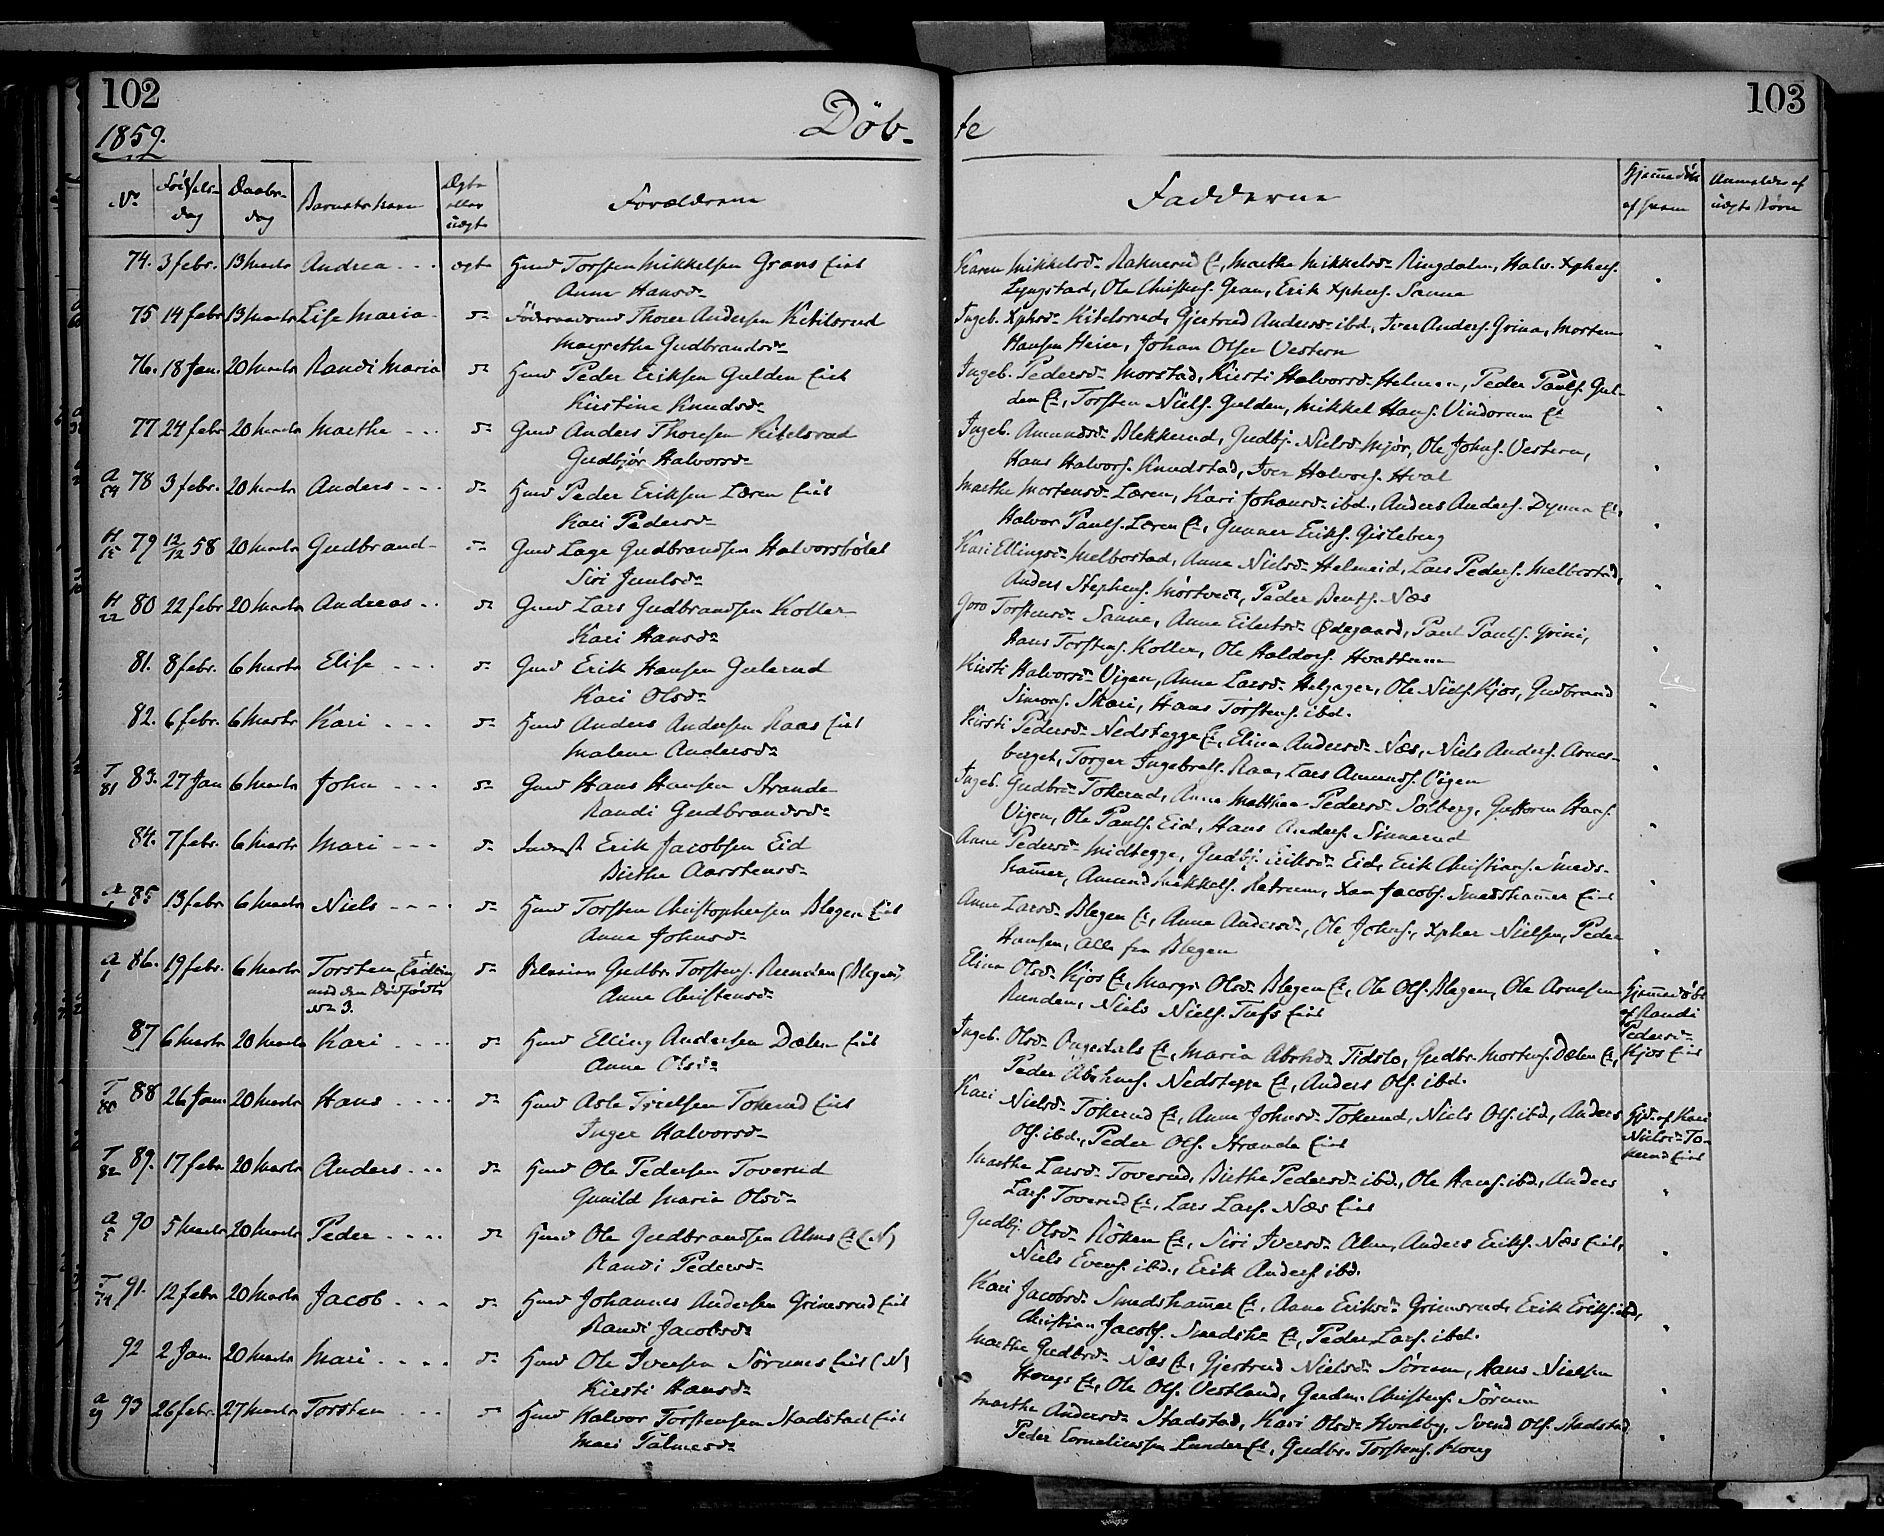 102
103
1859.
Döb-
te
No
Fødsels-
dag
Daabs-
dag
Barnets Navn
Ægte
eller
uægte
Forældrene
Fadderne
Hjemmedöbt
af hvem
Anmeldes af
uægte Börn
74. 3 febr. 13 Marts Andrea ægte Hmd Torsten Mikkelsen Grans Eiet
Anne Hansd.
Karen Mikkelsd. Raknerud Et, Marthe Mikkelsd. Ringdalen, Halv. Xphers.
Lyngstad, Ole Christens. Gran, Erik Xphers. Sanne
75 14 febr 13 Marts Lise Maria do Thorer Andersen Kittelsrud
Margrethe Gudbrandsd.
Ingeb. Xphsd. Kittelsrud, Gjertrud Andersd. ibd, Iver Anders. Grina, Morten
Hansen Heier, Johan Olsen Vestern
76. 18 Jan. 20 Marts Randi Maria do Hmd Peder Eriksen Gulden Eiet
Kirstine Knudsd.
Ingeb. Pedersd. Morstad, Kirsti Halvorsd. Helmen, Peder Pauls. Gul-
den Et, Torsten Niels. Gulden, Mikkel Hans. Vindorum Et
77 24 febr 20 Marts Marthe do Gmd Anders Thoresen Kittelsrud
Gudbjør Halvorsd.
Ingeb. Amundsd. Blekkerud, Gudbj. Nielsd. Mjør, Ole Johns. Vestern,
Hans Halvors. Knudstad, Iver Halvors. Hval
A 54 78 3 febr. 20 Marts Anders do Hmd Peder Eriksen Læren Eiet
Kari Pedersd.
Marthe Mortensd. Læren, Kari Johansd. ibd., Anders Anders. Dynna Et,
Halvor Pauls. Læren Et, Gunner Eriks. Gisleberg
H 15 79 12/12 58 20 Marts Gudbrand do Gmd Lage Gudbrandsen Halvorsbölet
Siri Juulsd.
Kari Ellingsd. Melbostad, Anne Nielsd. Helmeid, Lars Peders. Melbostad,
Anders Stephens. Mörtvedt, Peder Bents. Næs
H 22 80 22 febr 20 Marts Andreas do Gmd Lars Gudbrandsen Koller
Kari Hansd.
Goro Torstensd. Sanne, Anne Eilertsd. Ødegaard, Paul Pauls. Grini,
Hans Torstens. Koller, Ole Haldors. Hvattum
81. 8 febr. 6 Marts Elise do Gmd Erik Hansen Gulerud
Kari Olsd.
Kirsti Halvorsd. Vigen, Anne Larsd. Helgager, Ole Niels. Kjos, Gudbrand
Simens. Skari, Hans Torstens. ibd.
82. 6 febr. 6 Marts Kari do Hmd Anders Andersen Raas Eiet
Malene Andersd.
Kirsti Pedersd. Nedstegge Et, Elina Andersd. Næs, Niels Anders. Arnes-
berget, Torger Ingebrets. Raa, Lars Amunds. Vigen
T 81 83. 27 Jan 6 Marts John do Gmd Hans Hansen Strande
Randi Gudbrandsd.
Ingeb. Gudbrd. Tokerud, Anne Mathea Pedersd. Solberg, Guttorm Hans.
Vigen, Ole Pauls. Eid, Hans Anders. Sinnerud
84. 7 febr. 6 Marts Mari do Inderst Erik Jacobsen Eid
Birthe Aarstensd.
Anne Pedersd. Midtegge, Gudbj. Eriksd. Eid, Erik Christians. Smeds-
hamer, Amund Mikkels. Retrum, Jacobs. Smedshamer Eiet
85 13 febr 6 Marts Niels do Hmd Torsten Christophersen Blegen Eiet
Anne Johnsd.
Anne Larsd. Blegen Et, Anne Andersd., Ole Johns., Xpher Nielsen, Peder
Hansen, Alle fra Blegen
A 1 86. 19 febr. 6 Marts Torsten, Tvilling
med den Dødfødte
No 3.
do Gudbr. Torstens. Runden (Blegen)
Anne Christensd.
Elina Olsd. Kjos Et, Margr. Olsd. Blegen Et, Ole Ols. Blegen, Ole Arnesen
Runden, Niels Niels. Tufs Eiet
Hjemmedöbt
af Randi
Pedersd.
Kjos Eiet
87 6 Marts 20 Marts Kari do Hmd Elling Andersen Dælen Eiet
Anne Olsd.
Ingeb. Olsd. Et, Maria Abrhd. Tidslo, Gudbr. Mortens. Dælen Et,
Peder Abrhms. Nedstegge Et, Anders Ols. ibd.
T 80 88 26 Jan. 20 Marts Hans do Hmd Asle Tokerud Eiet
Inger Halvorsd.
Kari Nielsd. Tokerud Et, Anne Johnsd. Tokerud, Niels Ols. ibd, Anders
Ols. ibd., Peder Ols. Strande Eiet
Hjd. af Kari
Nielsd. To-
kerud Eiet
T 82 89. 17 febr. 20 Marts Anders do Hmd Ole Pedersen Toverud
Gunild Maria Olsd.
Marthe Larsd. Toverud, Birthe Pedersd. ibd., Ole Hans. ibd., Anders
Lars. Toverud Et, Lars Lars. Næs Eiet
A 5 90 5 Marts 20 Marts Peder do Hmd Ole Gudbrandsen Alms Et (N)
Randi Pedersd.
Gudbj. Olsd. Röken Et, Siri Iversd. Alm, Anders Eriks. Næs Eiet,
Niels Evens. ibd., Erik Anders. ibd.
T 74 91. 12 febr 20 Marts Jacob do Hmd Johannes Andersen Grimsrud Eiet
Randi Jacobsd.
Kari Jacobsd. Smedshamer Et, Anne Eriksd. Grimsrud, Erik Eriks. ibd,
Christian Jacobs. Smedsh. Et, Peder Lars. ibd.
92 2 Jan. 20 Marts Mari do Hmd Ole Iversen Sörums Eiet (N)
Kirsti Hansd.
Marthe Gudbrd. Næs Et, Gjertrud Nielsd. Sörum, Hans Nielsen
Hougs Et, Ole Ols. Vestland, Christens. Sörum
93 26 febr. 27 Marts Torsten do Hmd Halvor Torstensen Stadstad Eiet
Mari Palmesd.
Marthe Andersd. Stadstad, Kari Olsd. Hvalby, Svend Ols. Stadstad
Peder Corneliussen Lunder Et, Gudbr. Torstens. Houg